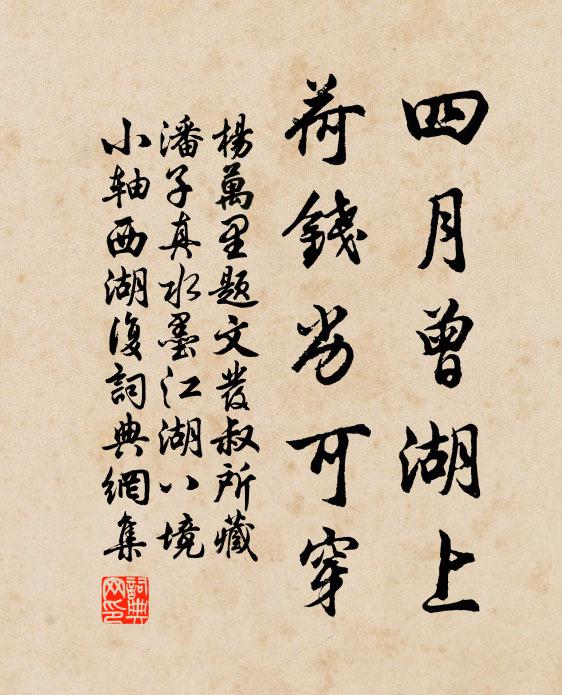 四月曾湖上
荷錢劣可穿
楊萬里題文發叔所藏
潘子真水墨江湖八境
小軸西湖復詞典網集
詞典網印